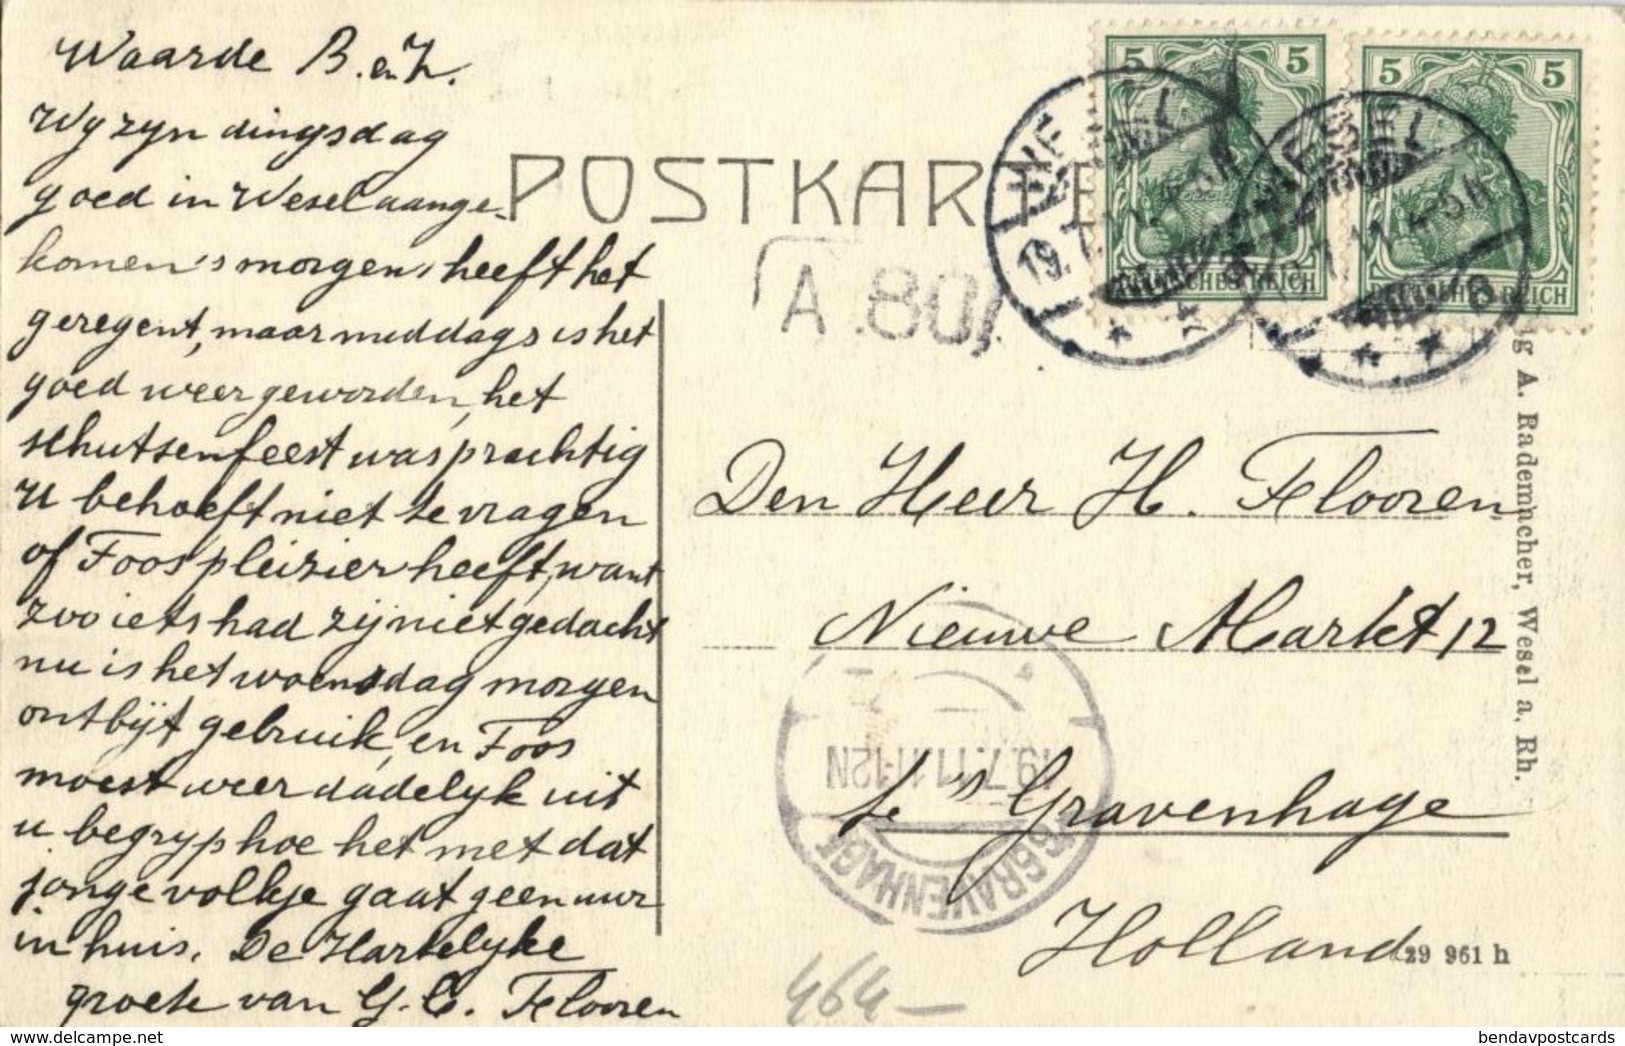 Waarde B. en Z.
Wy zyn dingsdag
goed in Wesel aange-
komen 's morgens heeft het
geregent, maar middags is het
goed weer geworden, het
schutsenfeest was prachtig
U behoeft niet te vragen
of Foos pleizier heeft, want
zoo iets had zij niet gedacht
nu is het woensdag morgen
ontbijt gebruik, en Foos
moest weer dadelyk uit
u begryp hoe het met dat
jonge volkje gaat geen uur
in huis. De Hartelyke
groete van G. C. Flooren
POSTKARTE
A .80
5 5
DEUTSCHES REICH
5 5
DEUTSCHES REICH
WESEL
19.7.11. 4-5N
WESEL
7.11. 4-5N
Den Heer H. Flooren
Nieuwe Markt 12
te 's Gravenhage
Holland
'S GRAVENHAGE
19.7.11 11-12N
A. Rademacher, Wesel a. Rh.
29 961 h
464 —
bendavpostcards